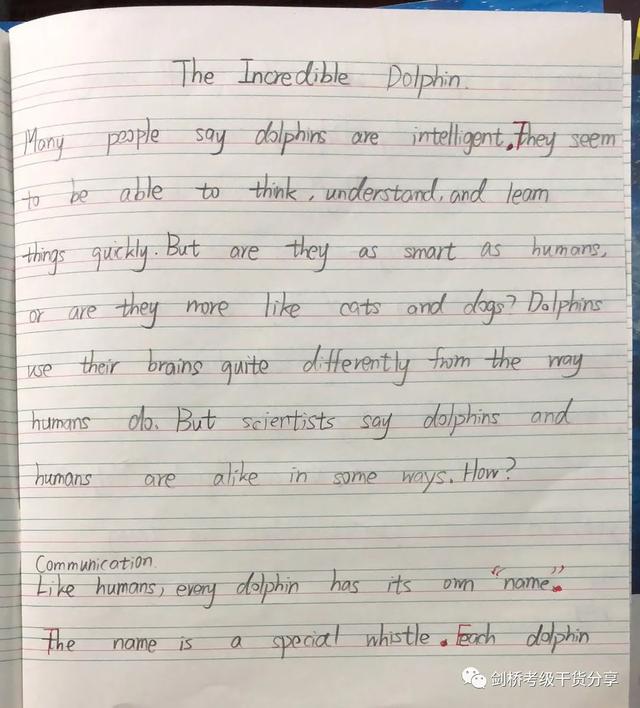 The Incredible Dolphin.
Many people say dolphins are intelligent. They seem
to be able to think, understand, and learn
things quickly. But are they as smart as humans,
or are they more like cats and dogs? Dolphins
use their brains quite differently from the way
humans do. But scientists say dolphins and
humans are alike in some ways. How?
Communication
Like humans, every dolphin has its own "name".
The name is a special whistle. Each dolphin
剑桥考级干货分享